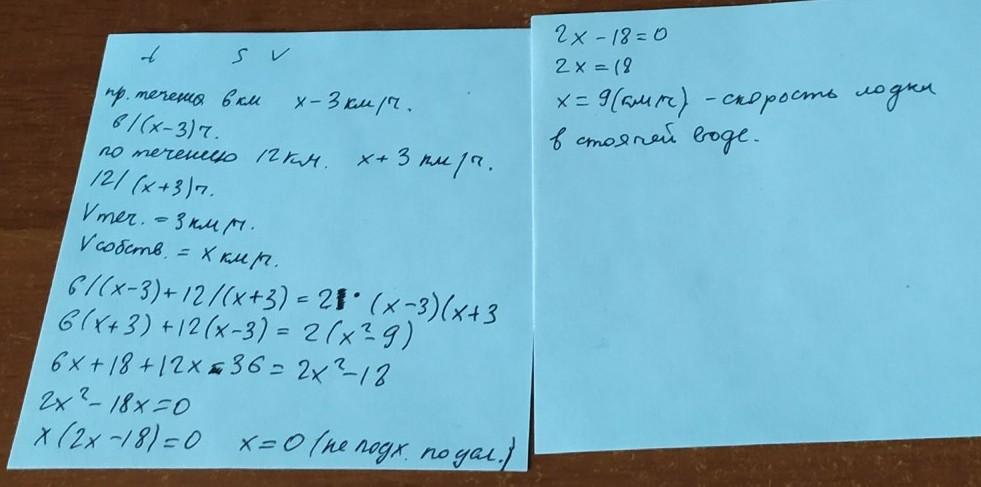 t S V
пр. течения 6 км x - 3 км/ч.
6/(x-3)ч.
по течению 12 км. x + 3 км/ч.
12/(x+3)ч.
Vтеч. = 3 км/ч.
Vсобств. = x км/ч.
6/(x-3)+12/(x+3) = 2 · (x-3)(x+3
6(x+3) + 12(x-3) = 2(x²-9)
6x+18+12x-36 = 2x²-18
2x²-18x=0
x(2x-18)=0 x=0 (не подх. по усл.)
2x-18=0
2x=18
x = 9(км/ч) - скорость лодки
в стоячей воде.